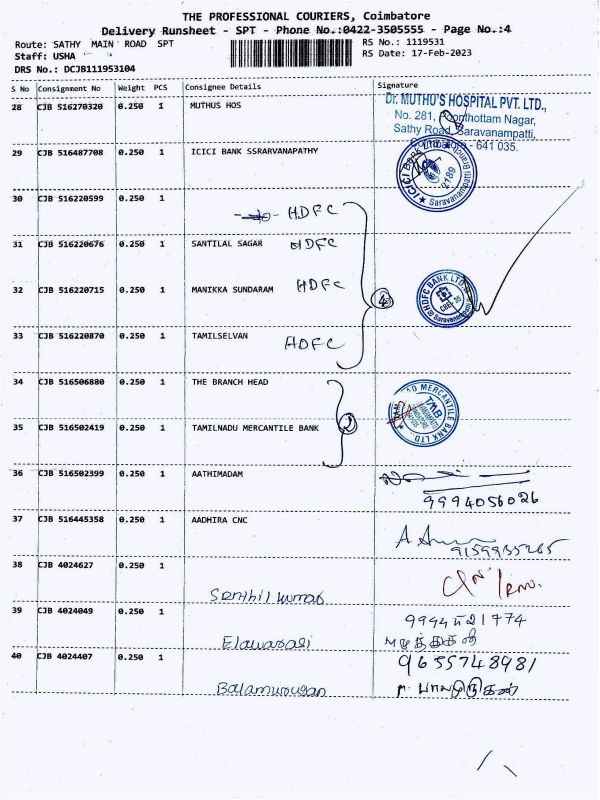 THE PROFESSIONAL COURIERS, Coimbatore
Delivery Runsheet - SPT - Phone No.:0422-3505555 - Page No.:4
Route: SATHY MAIN ROAD SPT
RS No.: 1119531
Staff: USHA
RS Date: 17-Feb-2023
DRS No.: DCJB111953104
S No Consignment No Weight PCS Consignee Details Signature
28 CJB 516270320 0.250 1 MUTHUS HOS
Dr. MUTHU'S HOSPITAL PVT. LTD.,
No. 281, Poonthottam Nagar,
Sathy Road, Saravanampatti,
Coimbatore - 641 035.
29 CJB 516487708 0.250 1 ICICI BANK SSRARVANAPATHY
ICICI Bank Saravanampatti Branch
30 CJB 516220599 0.250 1
HDFC
31 CJB 516220676 0.250 1 SANTILAL SAGAR HDFC
32 CJB 516220715 0.250 1 MANIKKA SUNDARAM HDFC
4
HDFC BANK LTD
33 CJB 516220870 0.250 1 TAMILSELVAN HDFC
34 CJB 516506880 0.250 1 THE BRANCH HEAD
MERCANTILE BANK LTD.
TMB
2
35 CJB 516502419 0.250 1 TAMILNADU MERCANTILE BANK
36 CJB 516502399 0.250 1 AATHIMADAM
9994056026
37 CJB 516445358 0.250 1 AADHIRA CNC
38 CJB 4024627 0.250 1
Senthil kumar
39 CJB 4024049 0.250 1
Elavarasi
40 CJB 4024407 0.250 1 9655748981
Balamurugan பாலமுருகன்